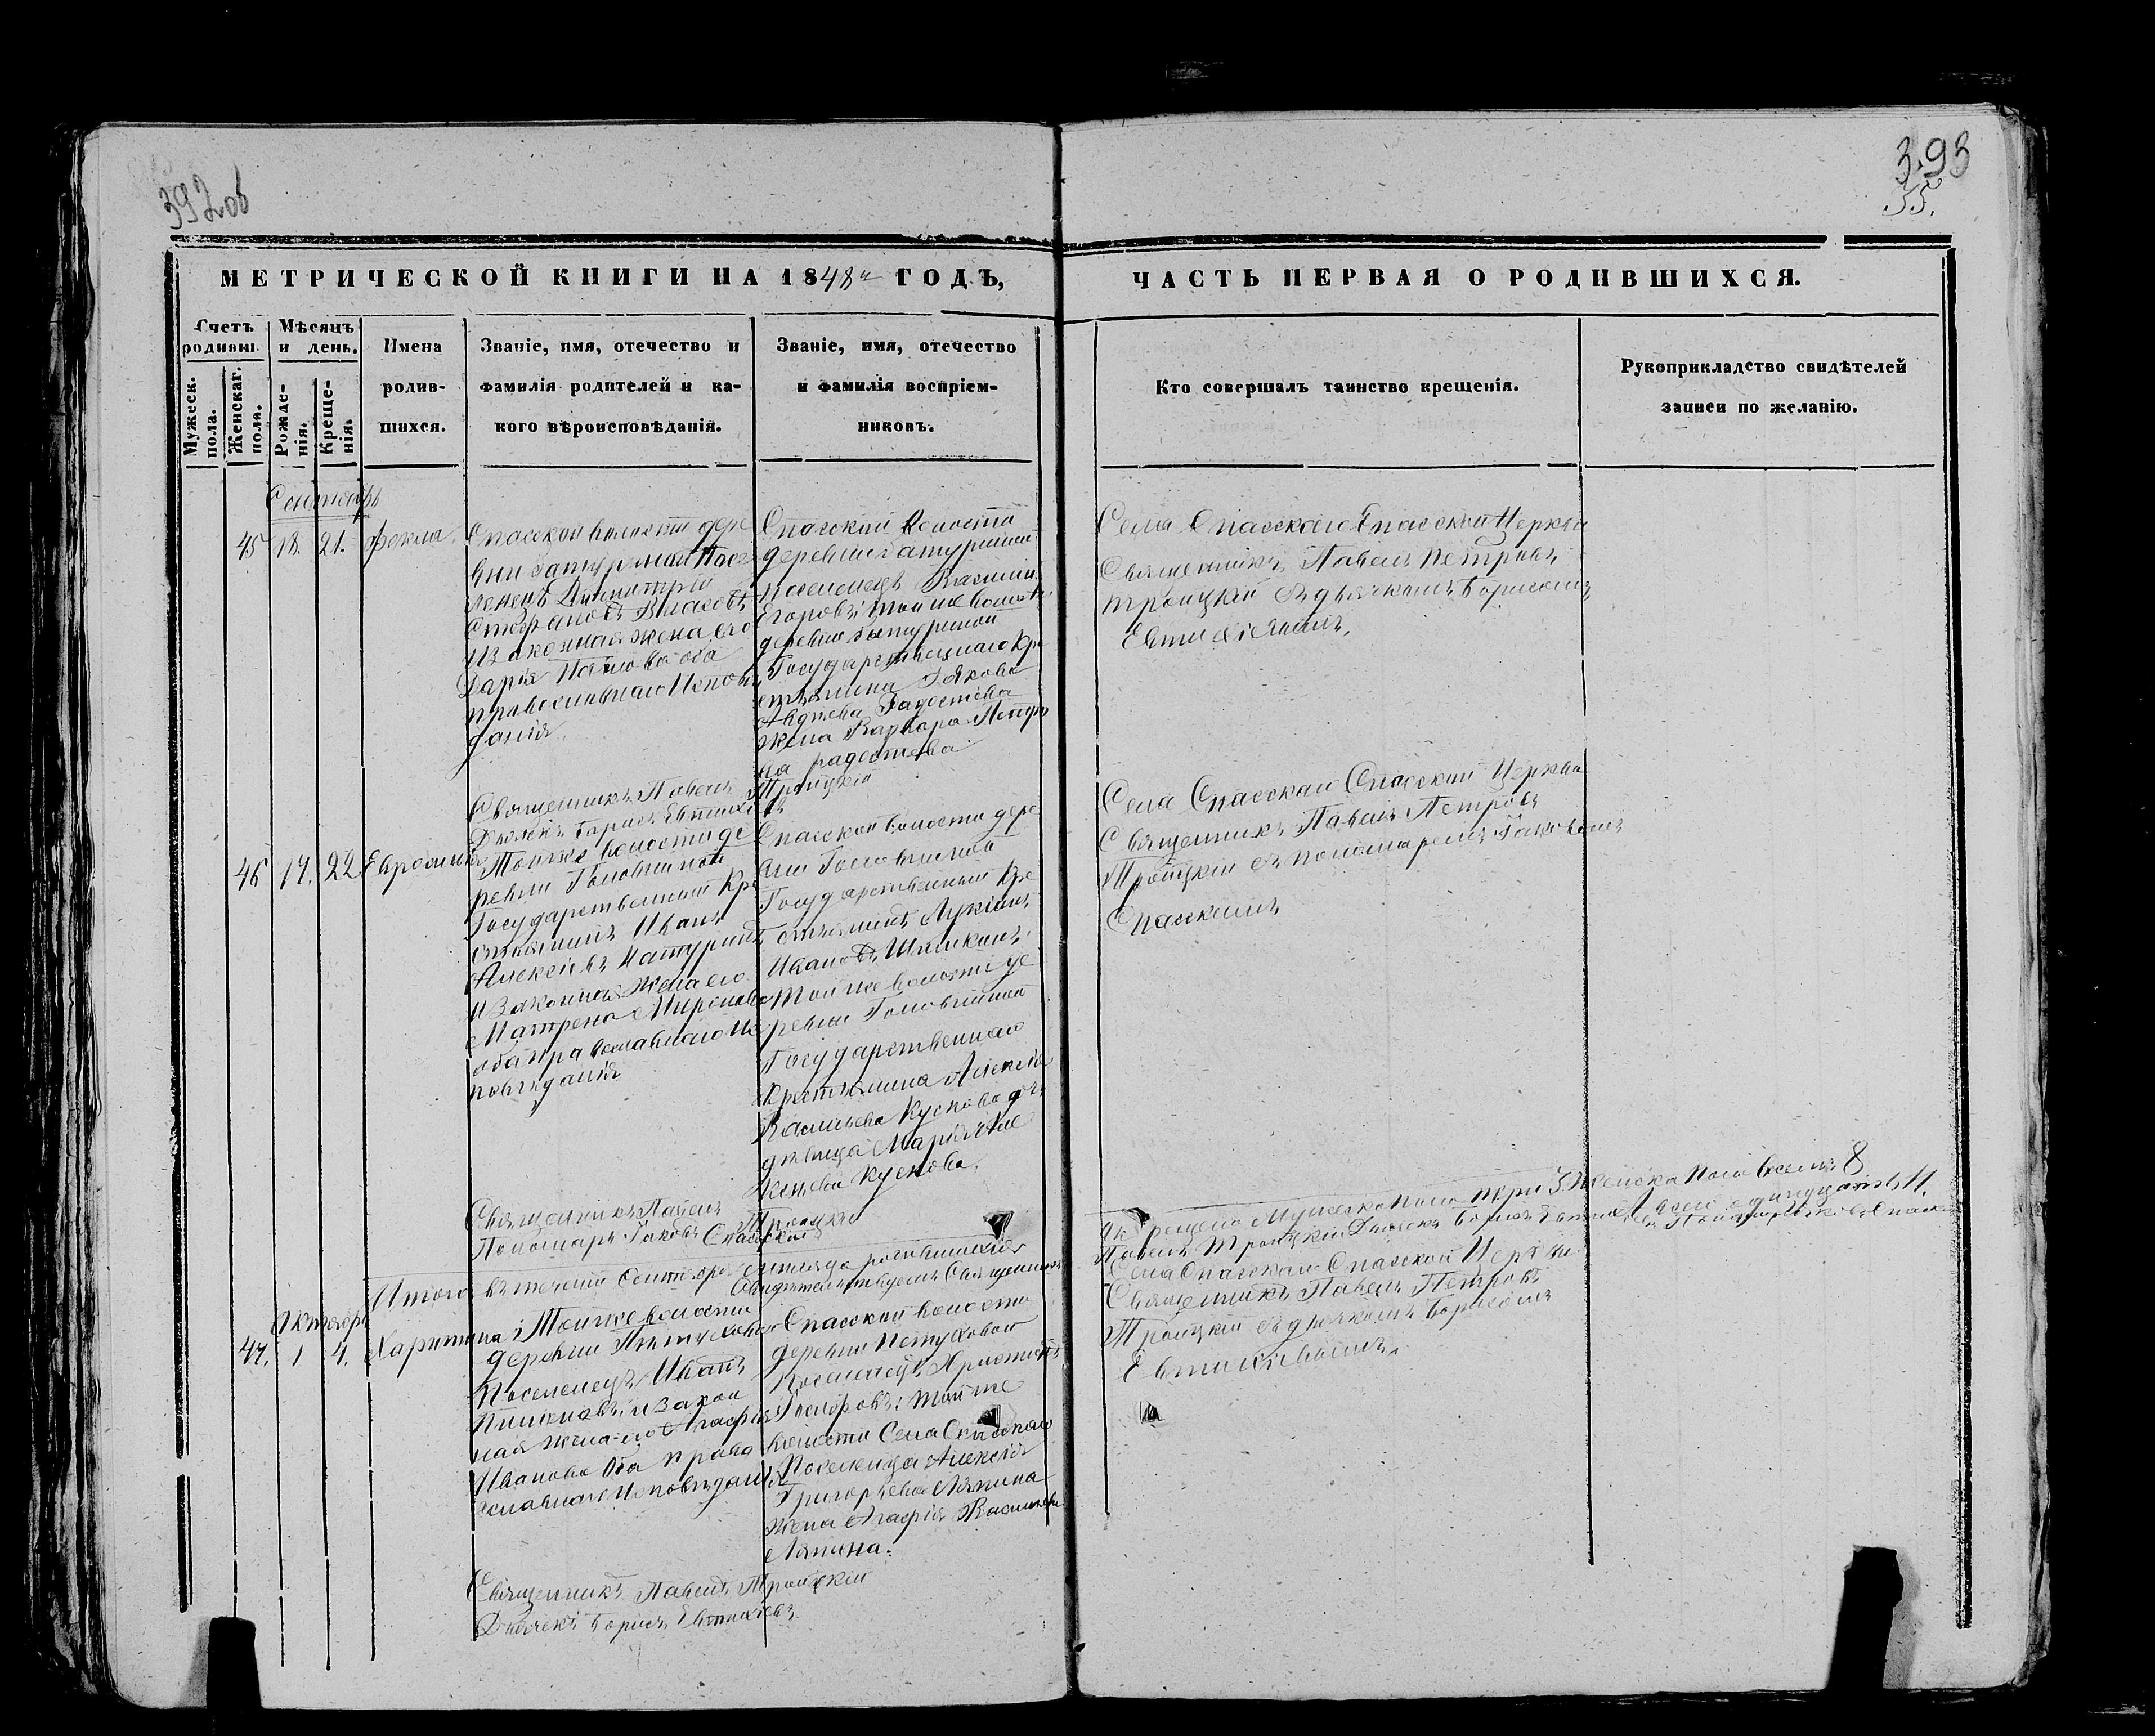 392 об
393
35.
МЕТРИЧЕСКОЙ КНИГИ НА 1848й ГОДЪ,
ЧАСТЬ ПЕРВАЯ О РОДИВШИХСЯ.
Счетъ родивш.
Мужеск. пола.
Женскаг. пола.
Мѣсяцъ и день.
Рожде-
нія.
Креще-
нія.
Имена
родив-
шихся.
Званіе, имя, отечество и
фамилія родителей и ка-
кого вѣроисповѣданія.
Званіе, имя, отечество
и фамилія воспріем-
никовъ.
Кто совершалъ таинство крещенія.
Рукоприкладство свидѣтелей
записи по желанію.
Сентябрь
45 18. 21. Фекла.
Спасской волости дере
вни Батуриной Посе
ленецъ Димитрій
Стефановъ Власовъ
и законная жена его
Дарія Павлова оба
православнаго Исповѣ
данія.
Спасской Волости
деревни Батуриной
поселенецъ Василій
Егоровъ; той же волости
деревни Батуриной
Государственнаго Кре
стьянина Іякова
Авдѣева
жена Варвара Петро
на
Села Спасскаго Спасской Церкви
Священникъ Павелъ Петровъ
Троицкій съ дьячкомъ Борисомъ
Евтихіевымъ.
Священникъ Павелъ Троицкій
Дьячекъ Борисъ Евтихіевъ
46 17. 22. Евросинія
Тойже волости де
ревни Головиной
Государственный Кре
стьянинъ Иванъ
Алексіевъ
и законная жена его
Матрена Миронова
оба православнаго Ис
повѣданія
Спасской волости дере
вни Головиной
Государственный Кре
стьянинъ Лукіанъ
Ивановъ
Той же волости де
ревни Головиной
Государственнаго
Крестьянина Алексія
Васильева Кускова дочь
дѣвица Марія Але
ксѣева Кускова.
Села Спасскаго Спасской Церкви
Священникъ Павелъ Петровъ
Троицкій съ пономаремъ Іаковомъ
Спасскимъ
Священникъ Павелъ Троицкій
Пономарь Іаковъ Спасской
Итого въ теченіи Сентября мѣсяца родившихся
и крещено Мужеска пола три 3. Женска пола восемь 8
всего одинадцать 11.
Свидѣтельствуемъ Священникъ
Павелъ Троицкій Дьячекъ Борисъ Евтихіевъ Пономарь Іаковъ Спасской
Октябрь
47. 1 4. Харитина
Тойже волости
деревни Пѣтуховой
Поселенецъ Иванъ
и закон
ная жена его Агафія
Иванова Оба право
славнаго Исповѣданія
Спасской волости
деревни Петуховой
Поселенецъ
той же
волости Села Спасскаго
Поселенца Алексія
Григорьева Ляпина
жена Агафія Васильева
Ляпина.
Села Спасскаго Спасской Церкви
Священникъ Павелъ Петровъ
Троицкій съ дьячкомъ Борисомъ
Евтихіевымъ.
Священникъ Павелъ Троицкій
Дьячекъ Борисъ Евтихіевъ